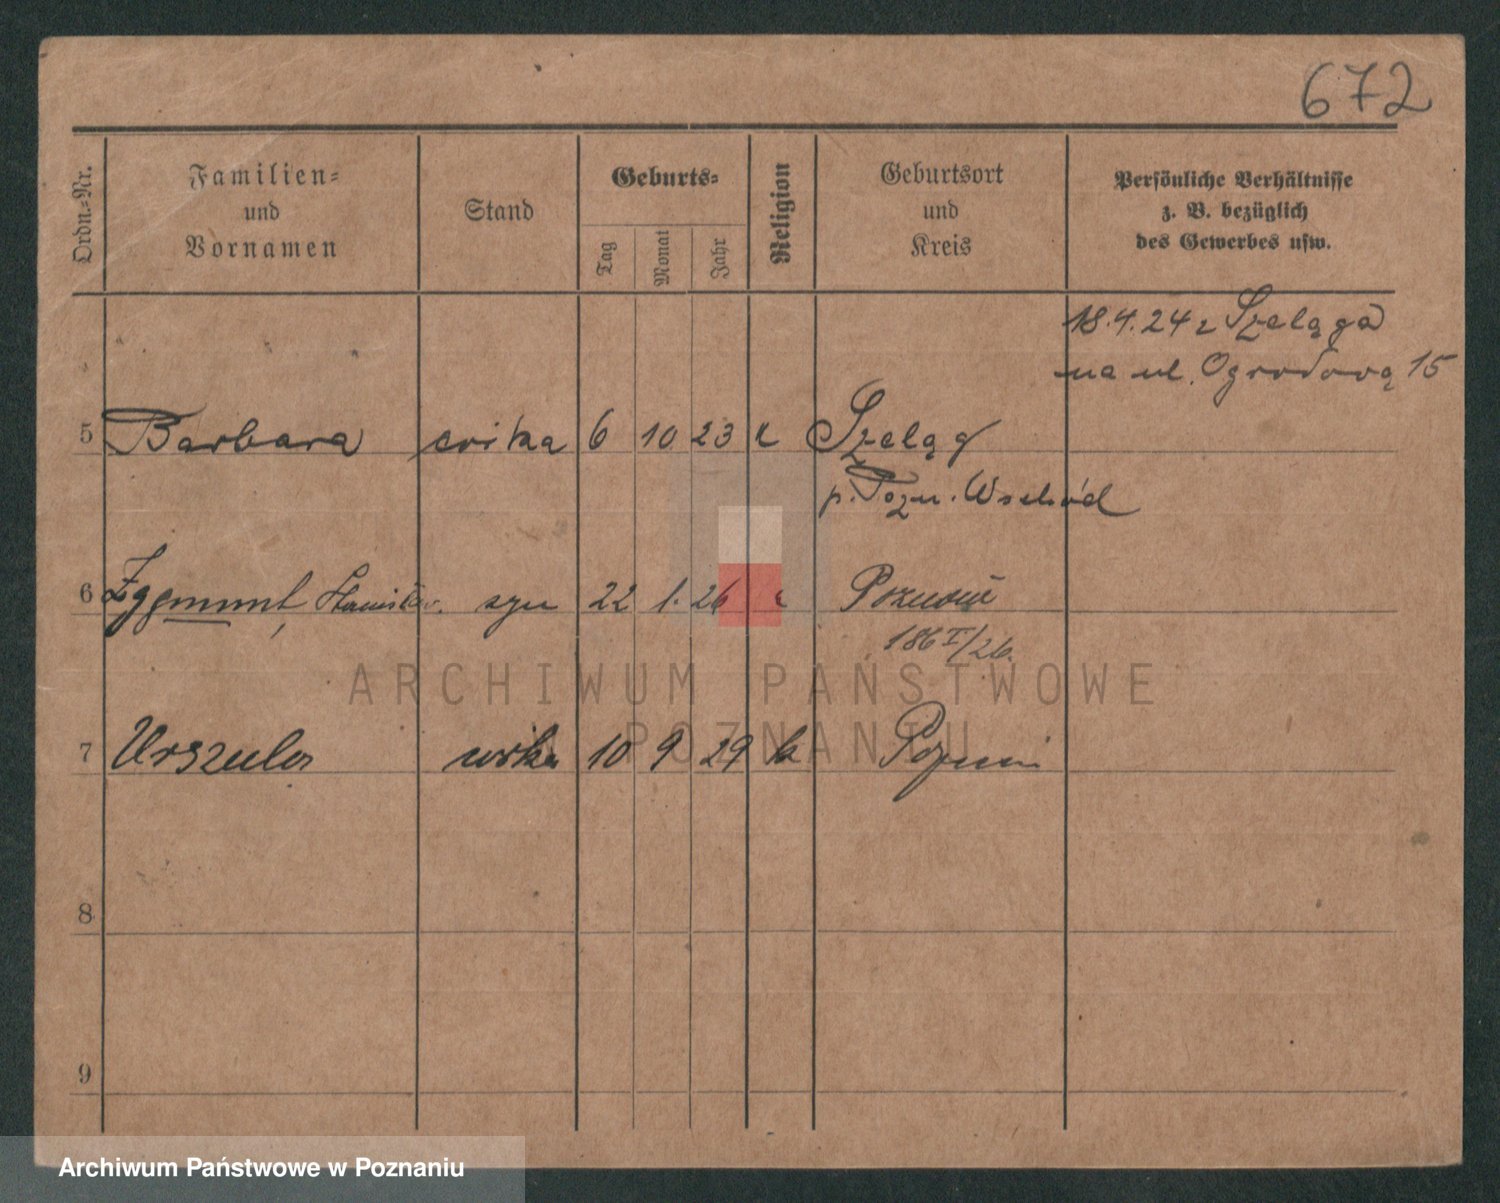 672
Ordn.-Nr.
Familien-
und
Vornamen
Stand
Geburts-
Tag
Monat
Jahr
Religion
Geburtsort
und
Kreis
Persönliche Verhältnisse
z. B. bezüglich
des Gewerbes usw.
18.4.24 z Szeląga
na ul. Ogrodową 15
5 Barbara córka 6 10 23 k Szeląg
p. Pozn. Wschód
6 Zygmunt, Stanisław. syn 22 1. 26 k Poznań
186 I/26.
ARCHIWUM PAŃSTWOWE
W POZNANIU
7 Urszula córka 10 9 29 k Poznań
8
9
Archiwum Państwowe w Poznaniu